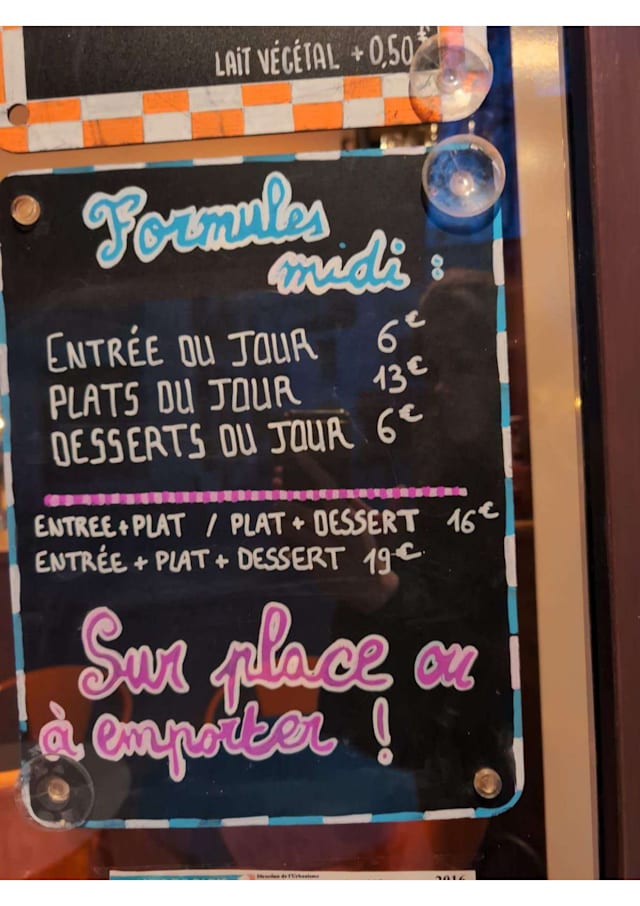 LAIT VÉGÉTAL + 0,50€
Formules
midi :
ENTRÉE DU JOUR 6€
PLATS DU JOUR 13€
DESSERTS DU JOUR 6€
ENTREE + PLAT / PLAT + DESSERT 16€
ENTRÉE + PLAT + DESSERT 19€
Sur place ou
à emporter !
Direction de l'Urbanisme
2016